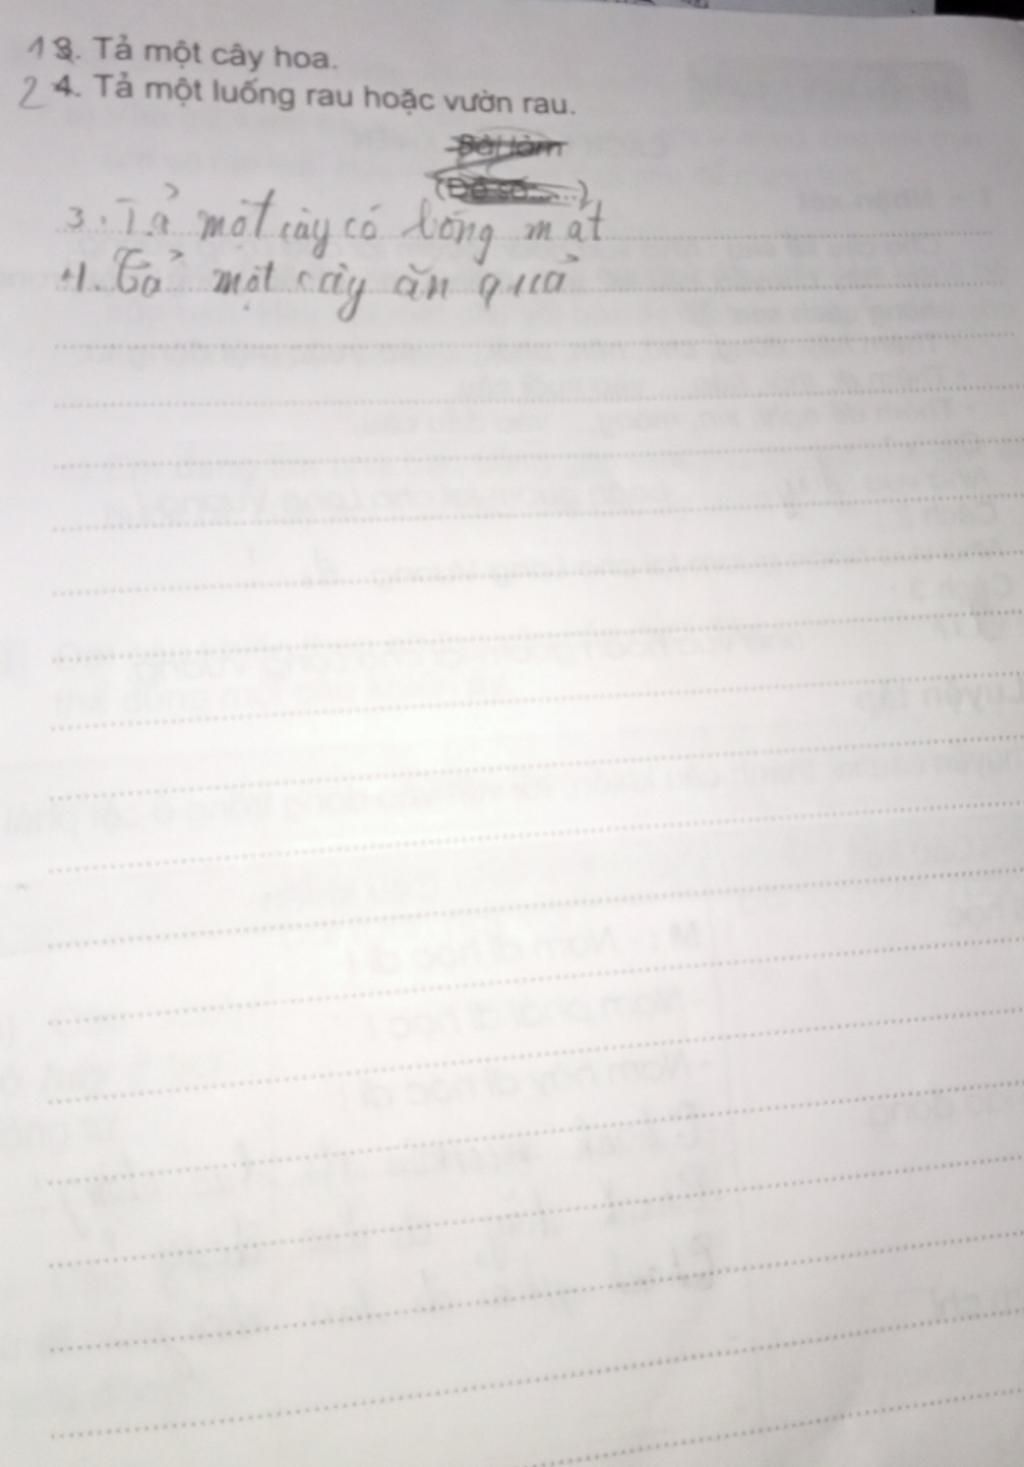 13. Tả một cây hoa.
2 4. Tả một luống rau hoặc vườn rau.
Bài làm
(Đề số......)
3. Tả một cây có bóng mát
4. Tả một cây ăn quả